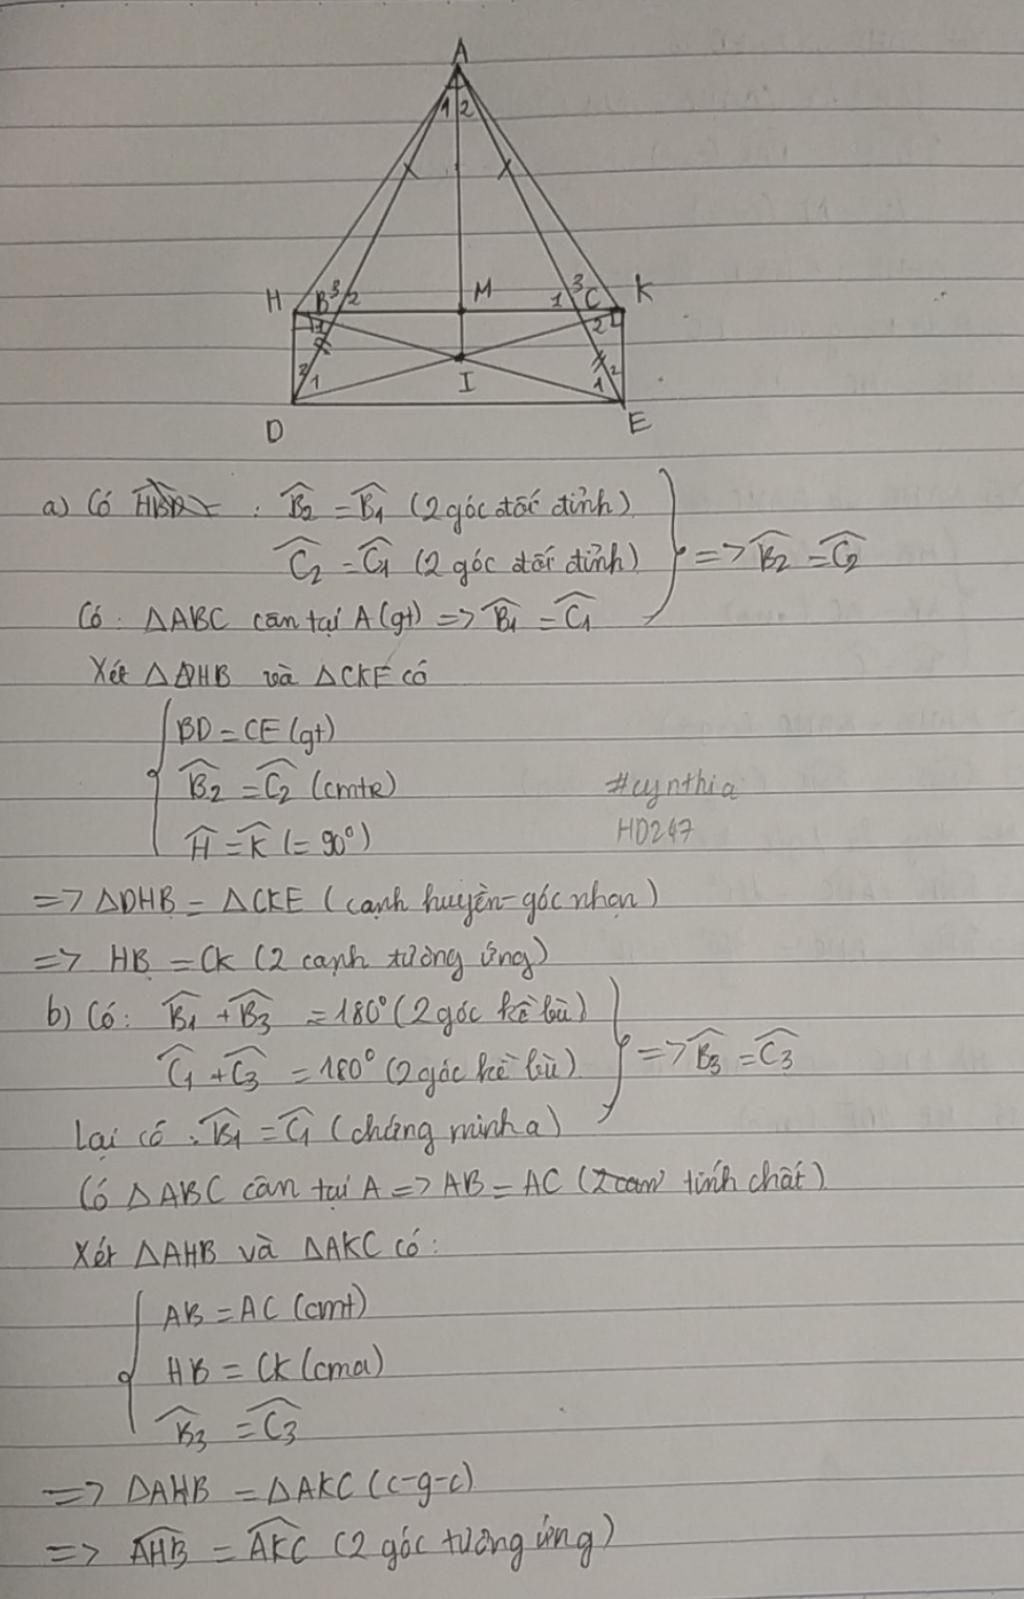 A
1 2
H B 3 2 M 1 3 C K
1 2
2 1 I 1 2
D E
a) Có : B̂2 = B̂1 (2 góc đối đỉnh)
Ĉ2 = Ĉ1 (2 góc đối đỉnh) => B̂2 = Ĉ2
Có : ΔABC cân tại A (gt) => B̂1 = Ĉ1
Xét ΔDHB và ΔCKE có
BD = CE (gt)
B̂2 = Ĉ2 (cmtr)
#cynthia
Ĥ = K̂ (= 90°)
HD247
=> ΔDHB = ΔCKE (cạnh huyền - góc nhọn)
=> HB = CK (2 cạnh tương ứng)
b) Có: B̂1 + B̂3 = 180° (2 góc kề bù)
Ĉ1 + Ĉ3 = 180° (2 góc kề bù) => B̂3 = Ĉ3
Lại có : B̂1 = Ĉ1 (chứng minh a)
Có ΔABC cân tại A => AB = AC (tính chất)
Xét ΔAHB và ΔAKC có :
AB = AC (cmt)
HB = CK (cma)
B̂3 = Ĉ3
=> ΔAHB = ΔAKC (c-g-c)
=> AHB̂ = AKĈ (2 góc tương ứng)